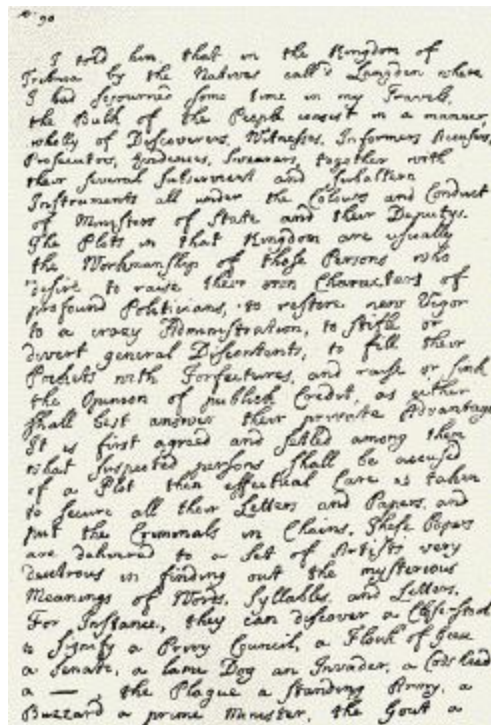 I told him that in the Kingdom of
Tribnia by the Natives call'd Langden where
I had sojourned some time in my Travels,
the Bulk of the People consist in a manner,
wholly of Discoverers, Witnesses, Informers Accusers,
Prosecutors, Evidences, Swearers, together with
their several subservient and subaltern
Instruments all under the Colours and Conduct
of Ministers of State and their Deputys.
The Plots in that Kingdom are usually
the Workmanship of those Persons who
desire to raise their own Characters of
profound Politicians, to restore new Vigor
to a crazy Administration, to stifle or
divert general Discontents, to fill their
Pockets with Forfeitures, and raise or sink
the Opinion of publick Credit, as either
shall best answer their private Advantage
It is first agreed and settled among them
what suspected persons shall be accused
of a Plot then effectual Care is taken
to secure all their Letters and Papers, and
put the Criminals in Chains. These Papers
are delivered to a Set of Artists very
dextrous in finding out the mysterious
Meanings of Words, Syllables, and Letters.
For Instance, they can discover a Close-stool
to signify a Privy Council, a Flock of Geese
a Senate, a lame Dog an Invader, a Codshead
a — , the Plague a standing Army, a
Buzzard a prime Minister, the Gout a